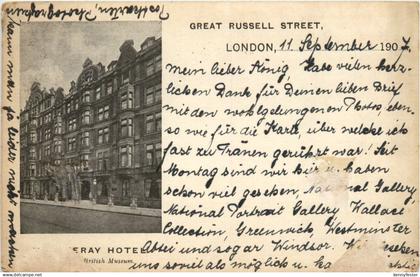 GREAT RUSSELL STREET,
LONDON, 11. September 1907.
Mein lieber König. Habe vielen herz-
lichen Dank für Deinen lieben Brief
mit den wohlgelungenen Photos eben-
so wie für die Karte, über welche ich
fast zu Tränen gerührt war! Seit
Montag sind wir hier u. haben
schon viel gesehen, National Gallery,
National Portrait Gallery Wallace
Collection, Greenwich, Westminster
Abtei und sogar Windsor.
uns soviel als möglich u.
ERAY HOTEL
British Museum.
Postkarten, Photographien
kann man ja leider nicht